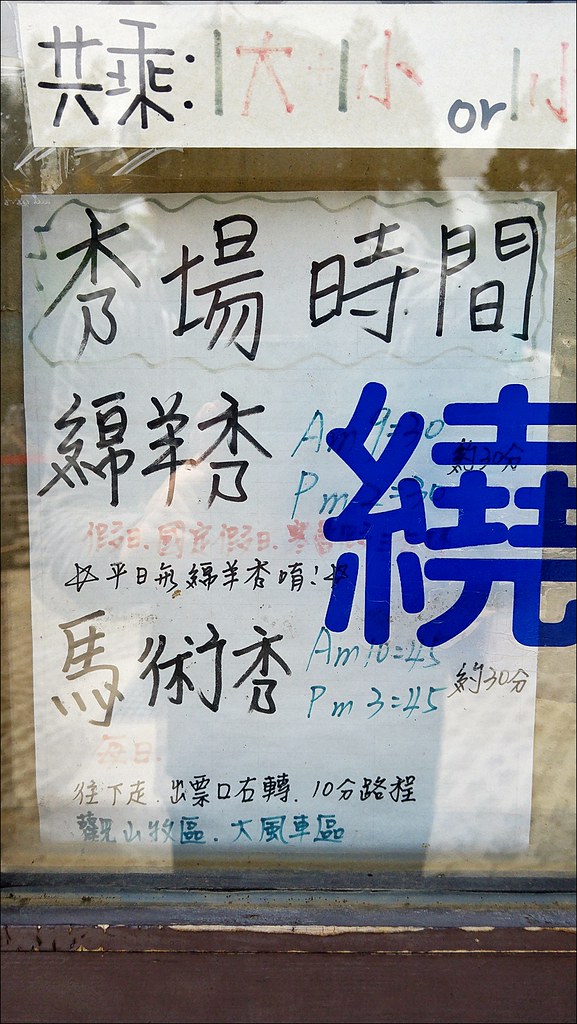 共乘: 1大 1小 or 1小
秀場時間
綿羊秀 Am 9:30 約30分
Pm 2:30
假日.國定假日.寒暑
平日無綿羊秀唷!
馬術秀 Am 10:45 約30分
Pm 3:45
每日.
往下走.出票口右轉.10分路程
觀山牧區.大風車區
繞